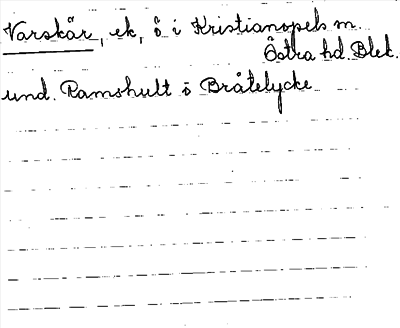 Varskär, ek, ö i Kristianopels sn.
Östra hd. Blek.
und. Ramshult o Bråtelycke